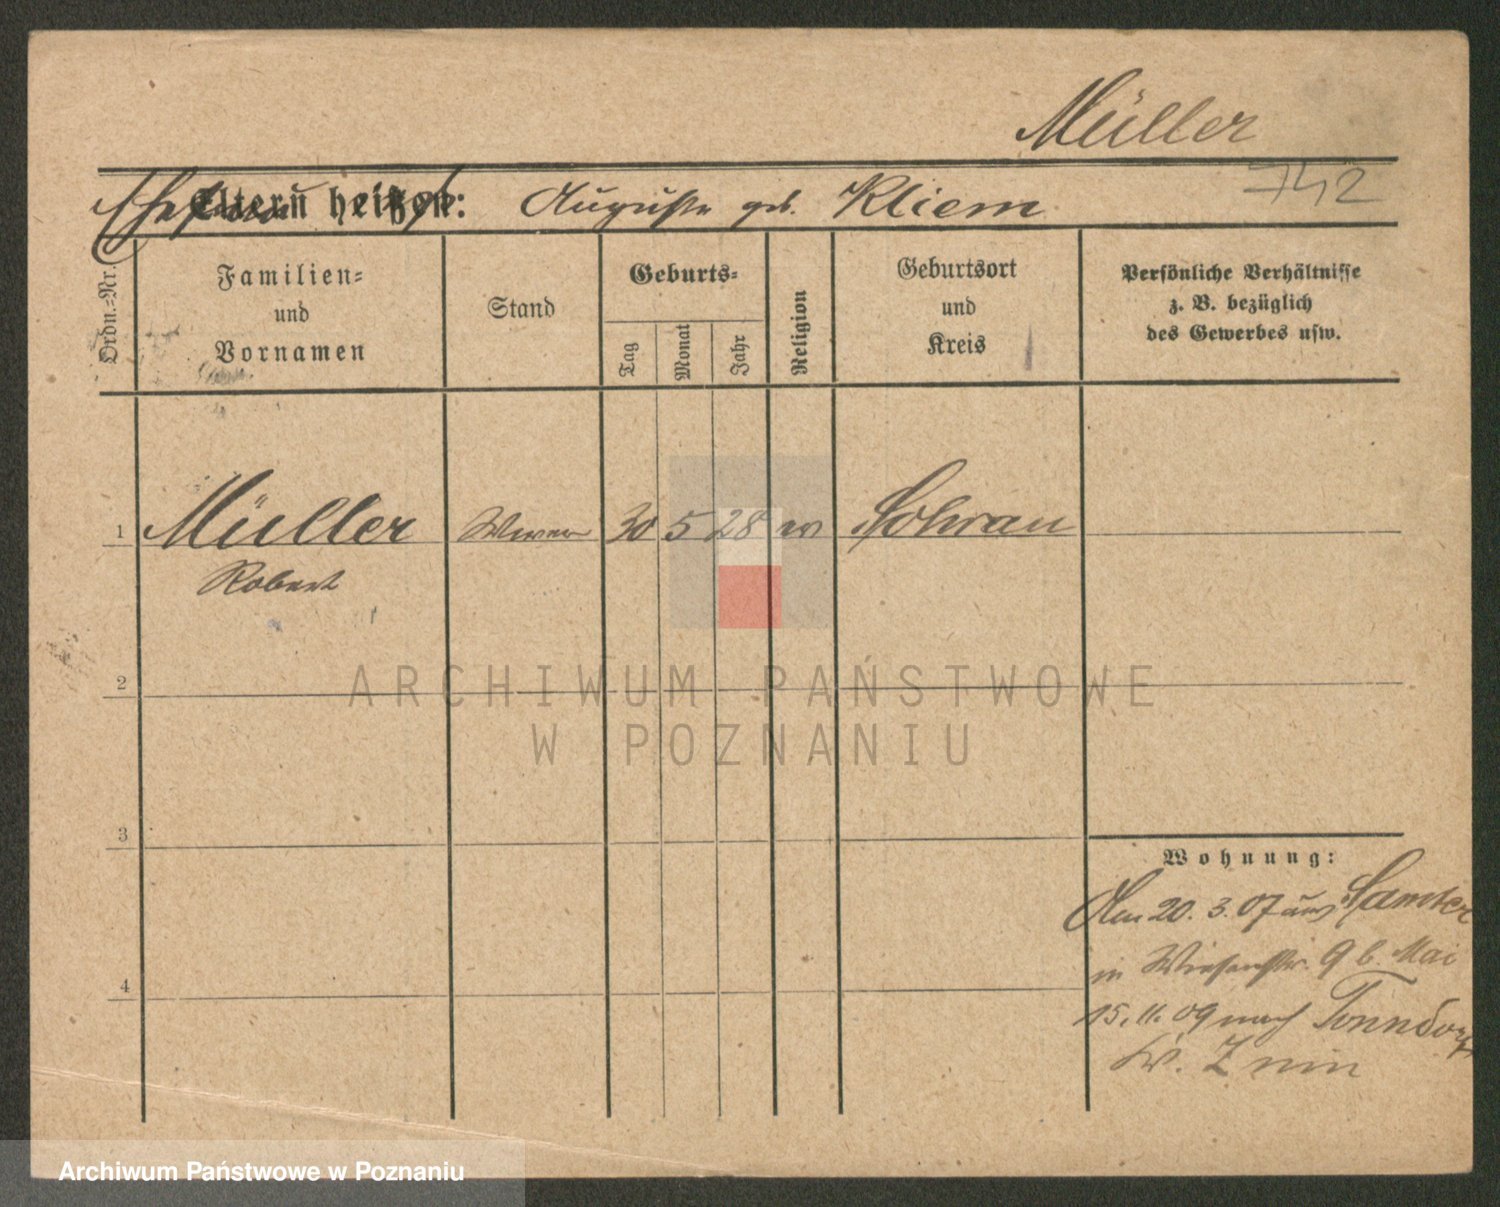 Müller
742
Eltern heißen: Auguste geb. Kliem
Ordn.-Nr.
Familien-
und
Vornamen
Stand
Geburts-
Tag
Monat
Jahr
Religion
Geburtsort
und
Kreis
Persönliche Verhältnisse
z. B. bezüglich
des Gewerbes usw.
1 Müller 30 5 28 Sohrau
Robert
2
3
4
Wohnung:
Am 20. 3. 07 aus Samter
in Wiesenstr. 9 b. Mai
15. 11. 09 nach Tonndorf
Kr. Znin
ARCHIWUM PAŃSTWOWE
W POZNANIU
Archiwum Państwowe w Poznaniu